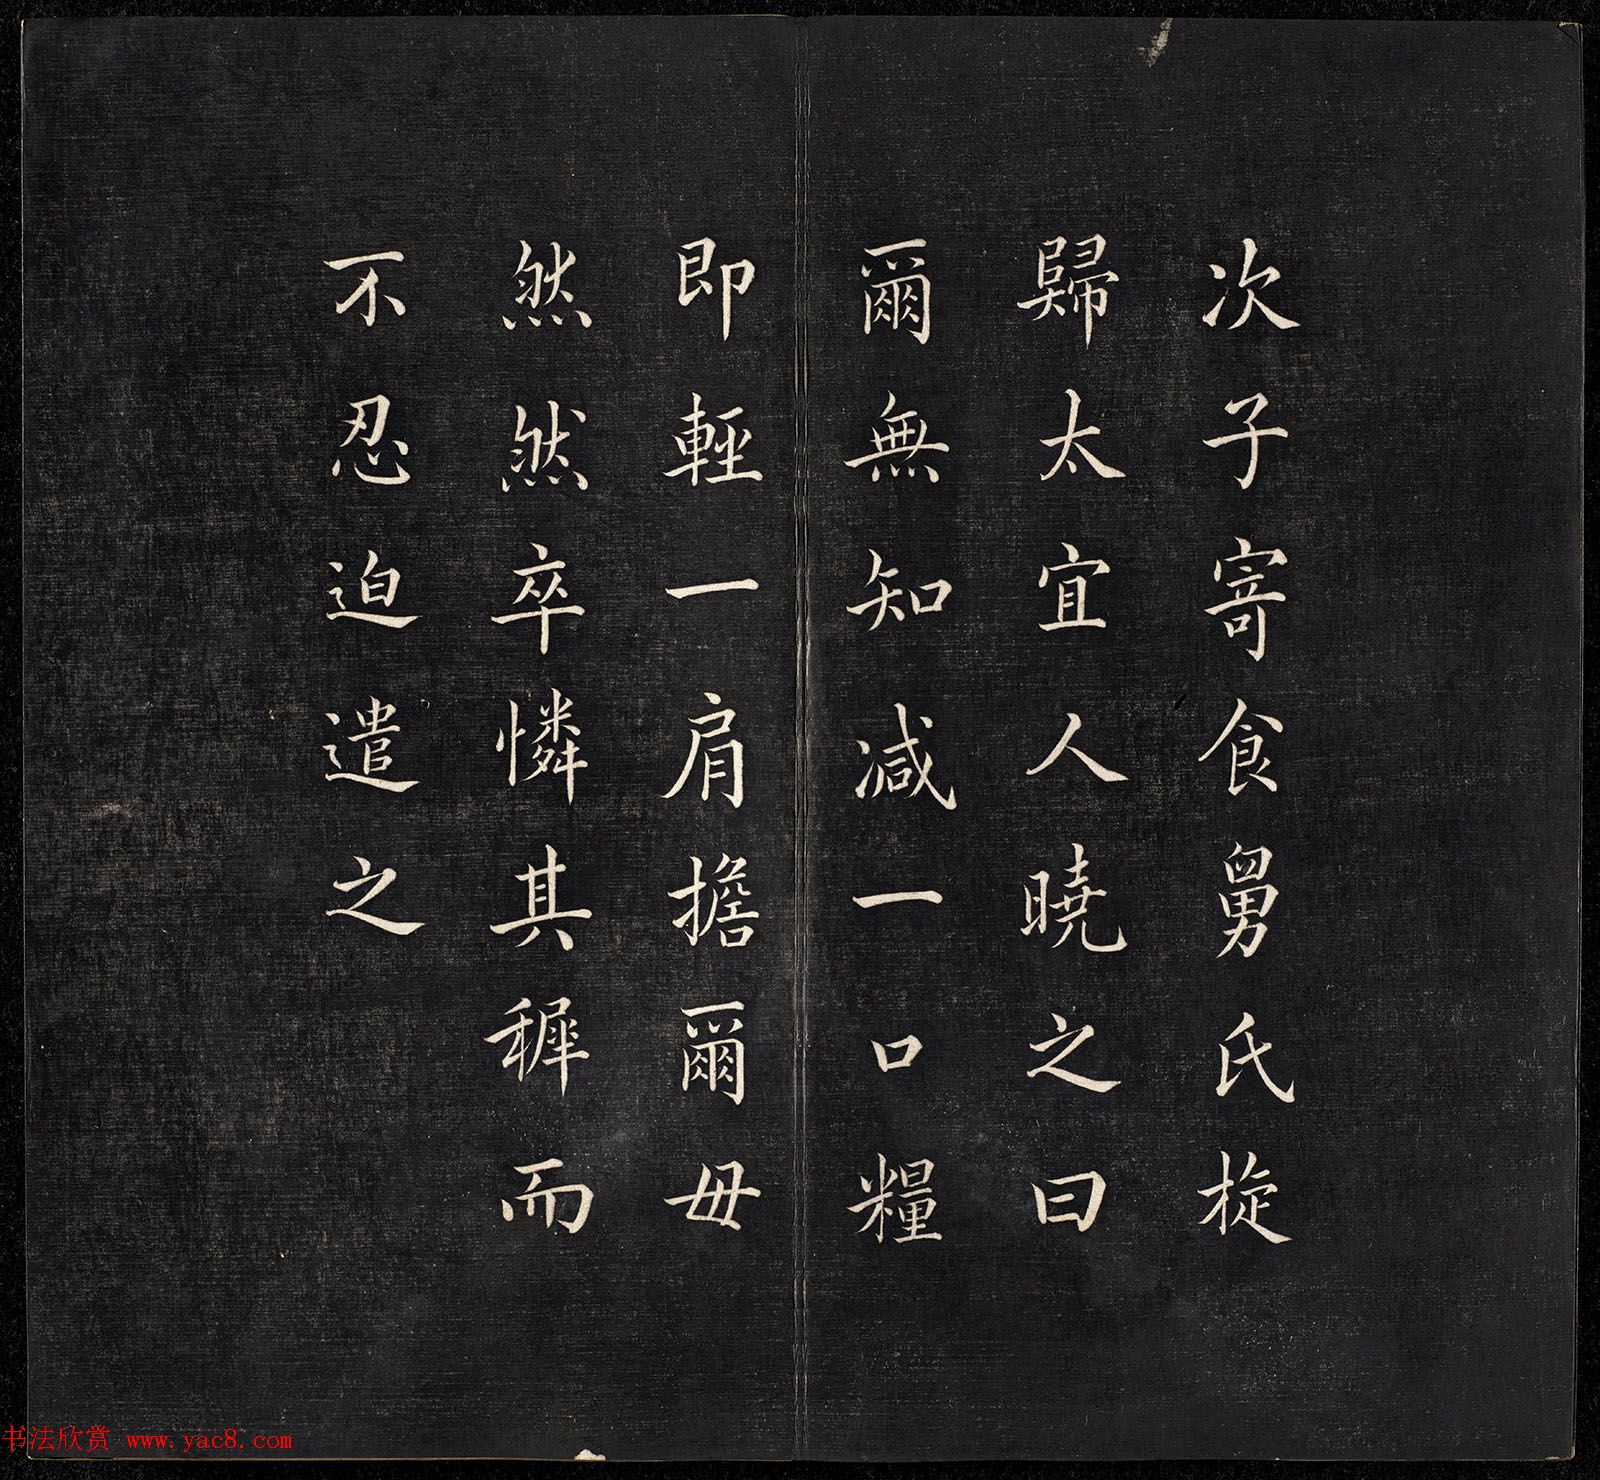 次子寄食舅氏旋
歸太宜人曉之曰
爾無知減一口糧
即輕一肩擔爾毋
然然卒憐其穉而
不忍迫遣之
书法欣赏 www.yac8.com